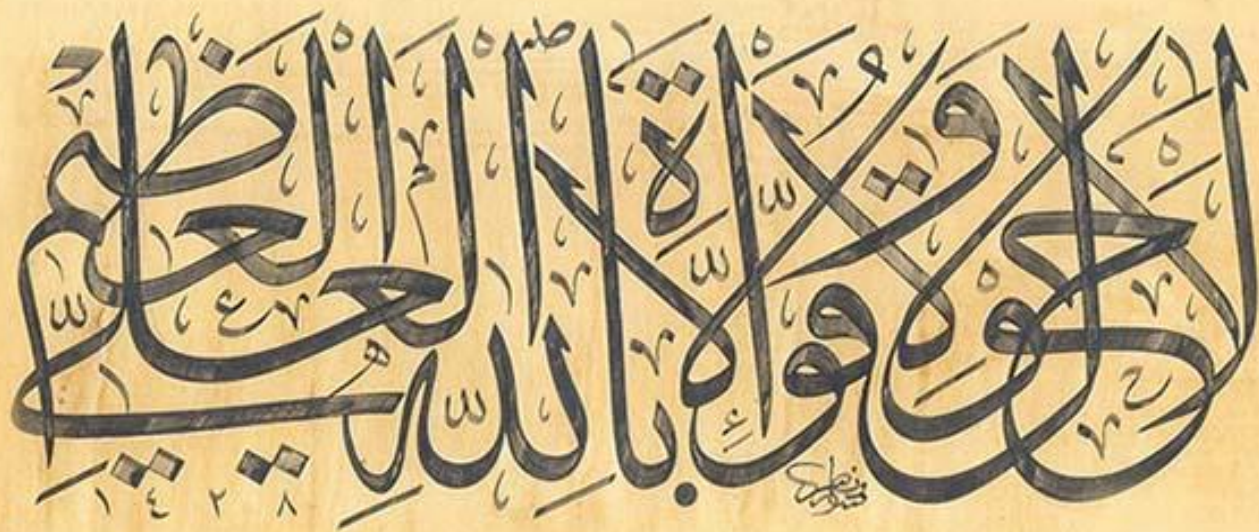 لا حول ولا قوة إلا بالله العلي العظيم
١٤٢٨